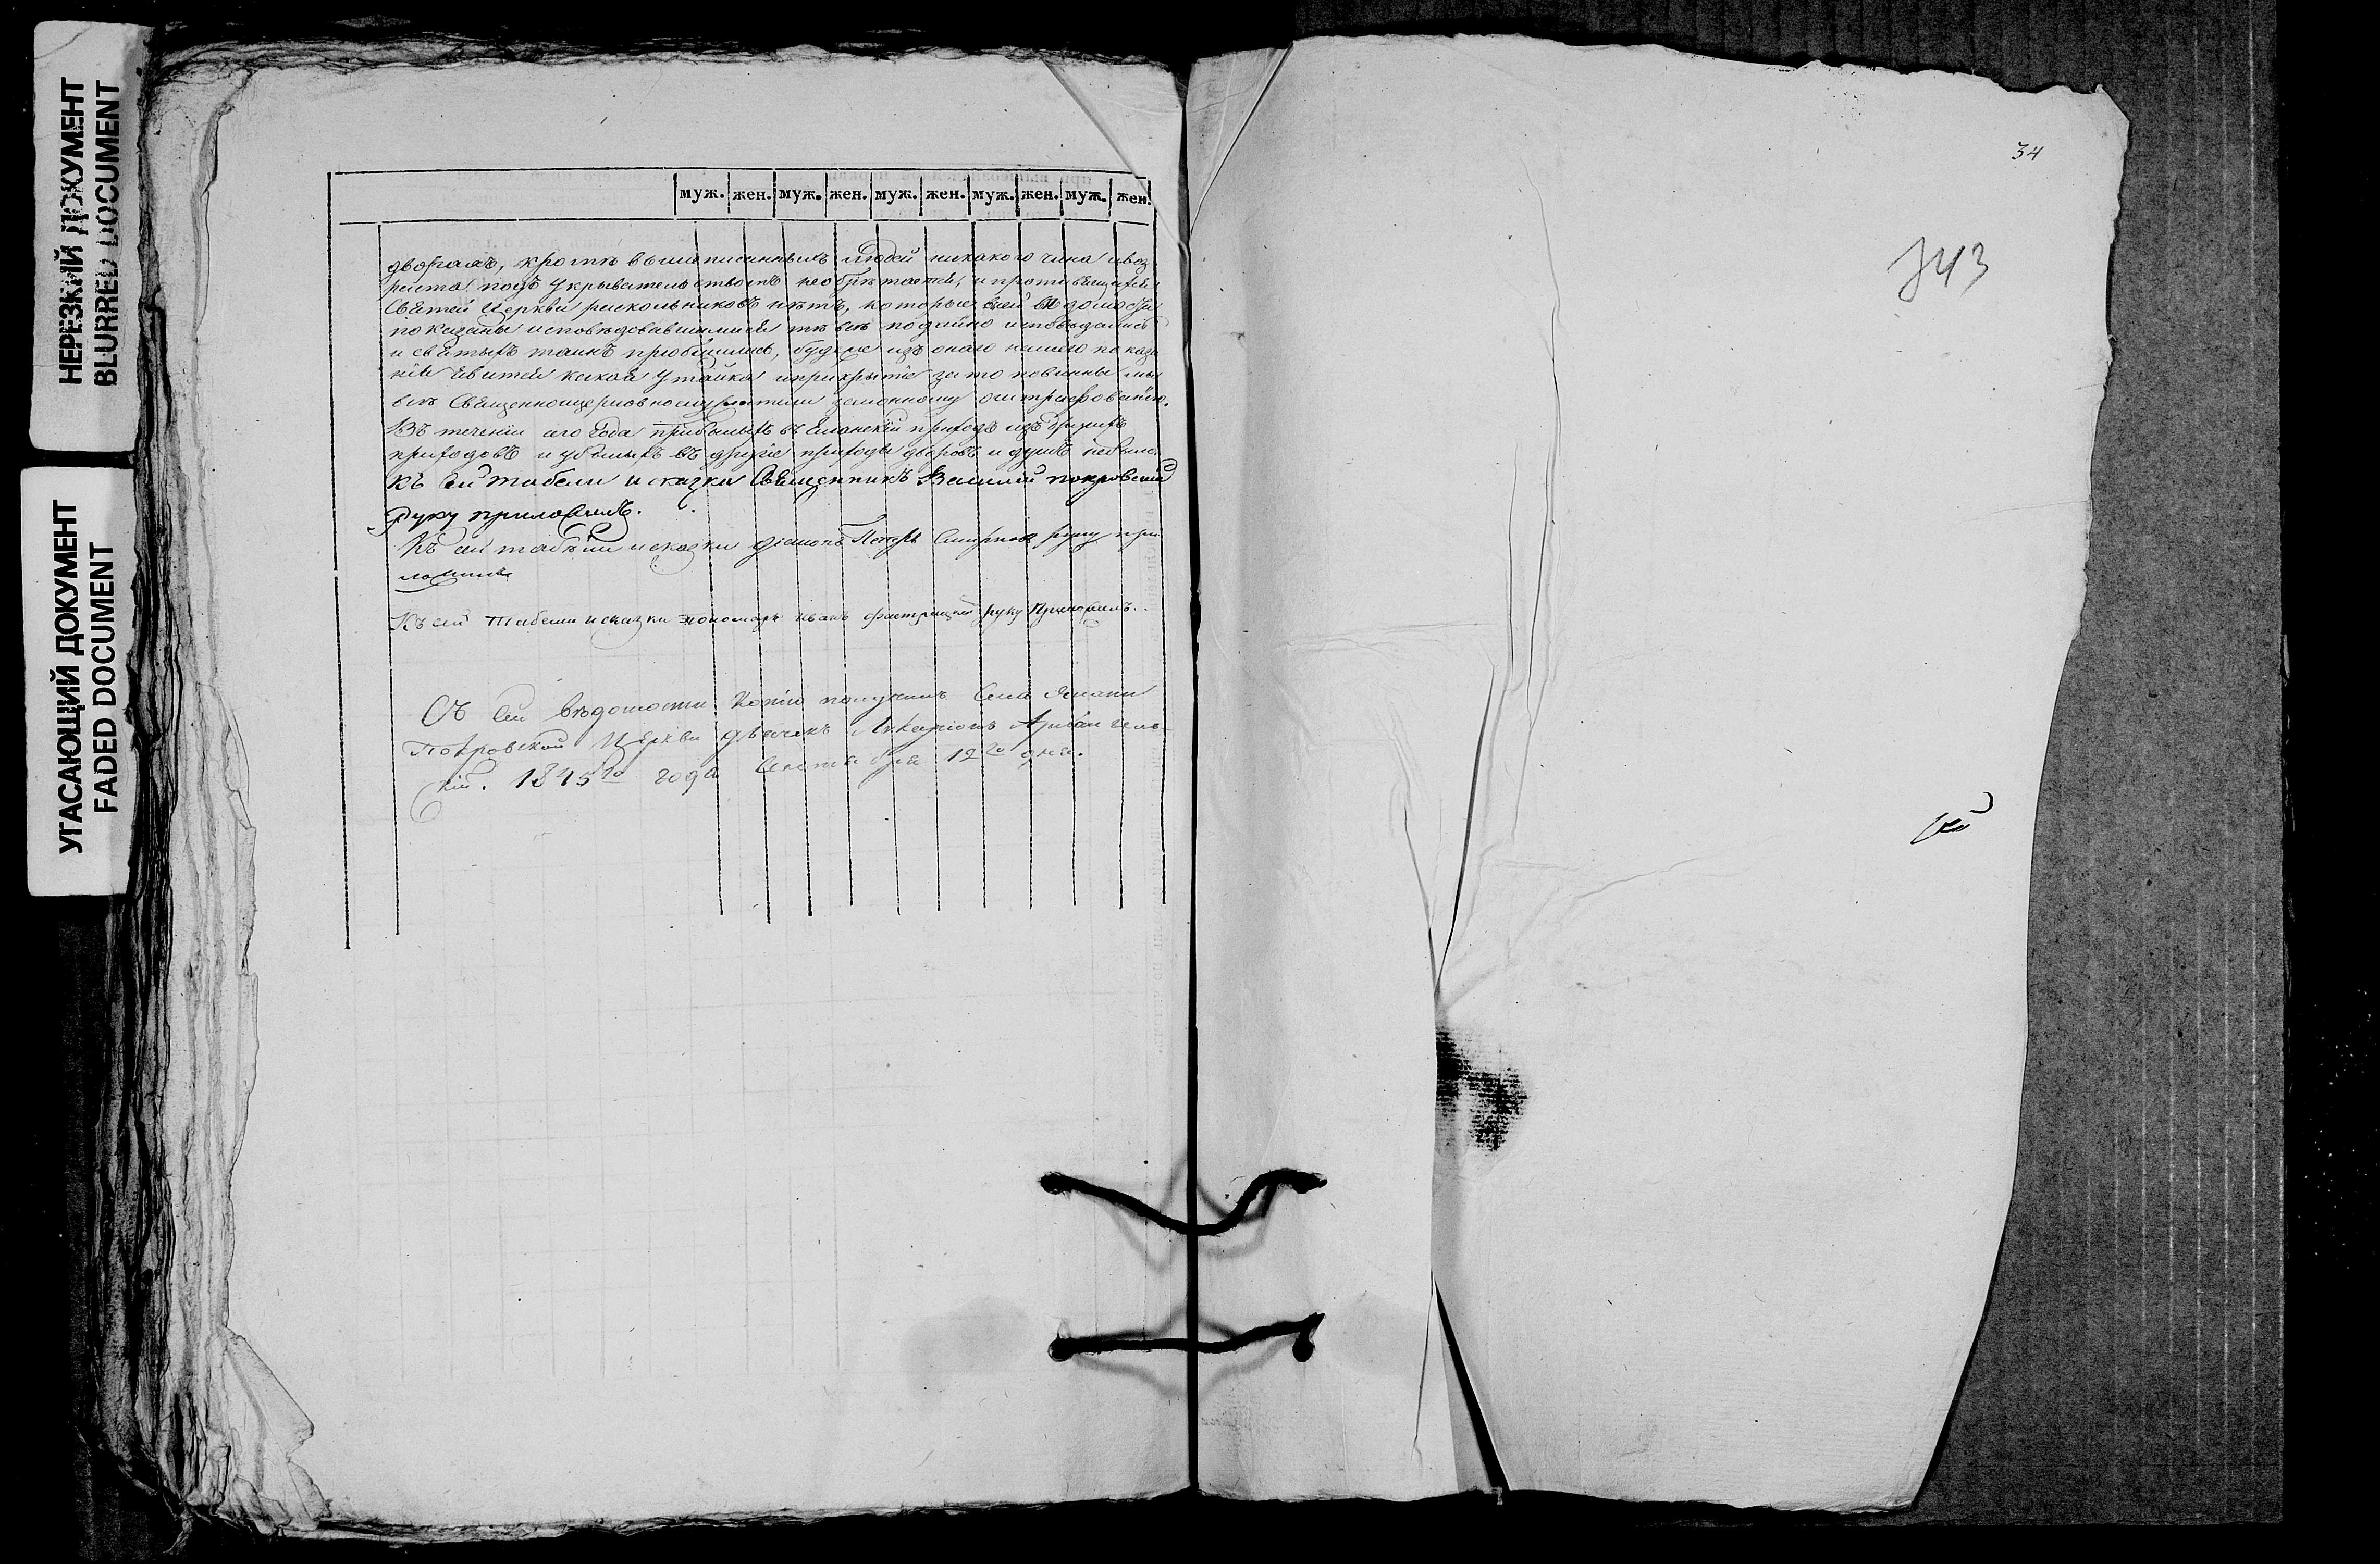 НЕРЕЗКИЙ ДОКУМЕНТ
BLURRED DOCUMENT
УГАСАЮЩИЙ ДОКУМЕНТ
FADED DOCUMENT
муж. жен. муж. жен. муж. жен. муж. жен. муж. жен.
дворахъ, кромѣ вышеписанныхъ людей никакого чина и воз
раста подъ укрывательствомъ необрѣтается, и противящихся
Святей Церкви раскольниковъ нѣтъ, которые
показаны исповѣдовавшимися тѣ всѣ исповѣдались
и святыхъ таинъ пріобщились, буде же изъ онаго нашего показа
нія явится какая утайка и прикрытіе за то повинны мы
законному оштрафованію.
Въ теченіи сего года прибылыхъ въ приходъ изъ другихъ
приходовъ и убылыхъ въ другіе приходы дворовъ и душъ небыло.
Къ сей табели и сказки Священникъ Василій Покровскій
руку приложилъ.
Къ сей табели и сказки діаконъ Петръ Смирновъ руку при
ложилъ
Къ сей табели и сказки пономарь Иванъ руку приложилъ.
Съ сей вѣдомости копію получилъ Села
Покровской Церкви дьячекъ Архангель
скій. 1845го года Сентября 12го дня.
34
743